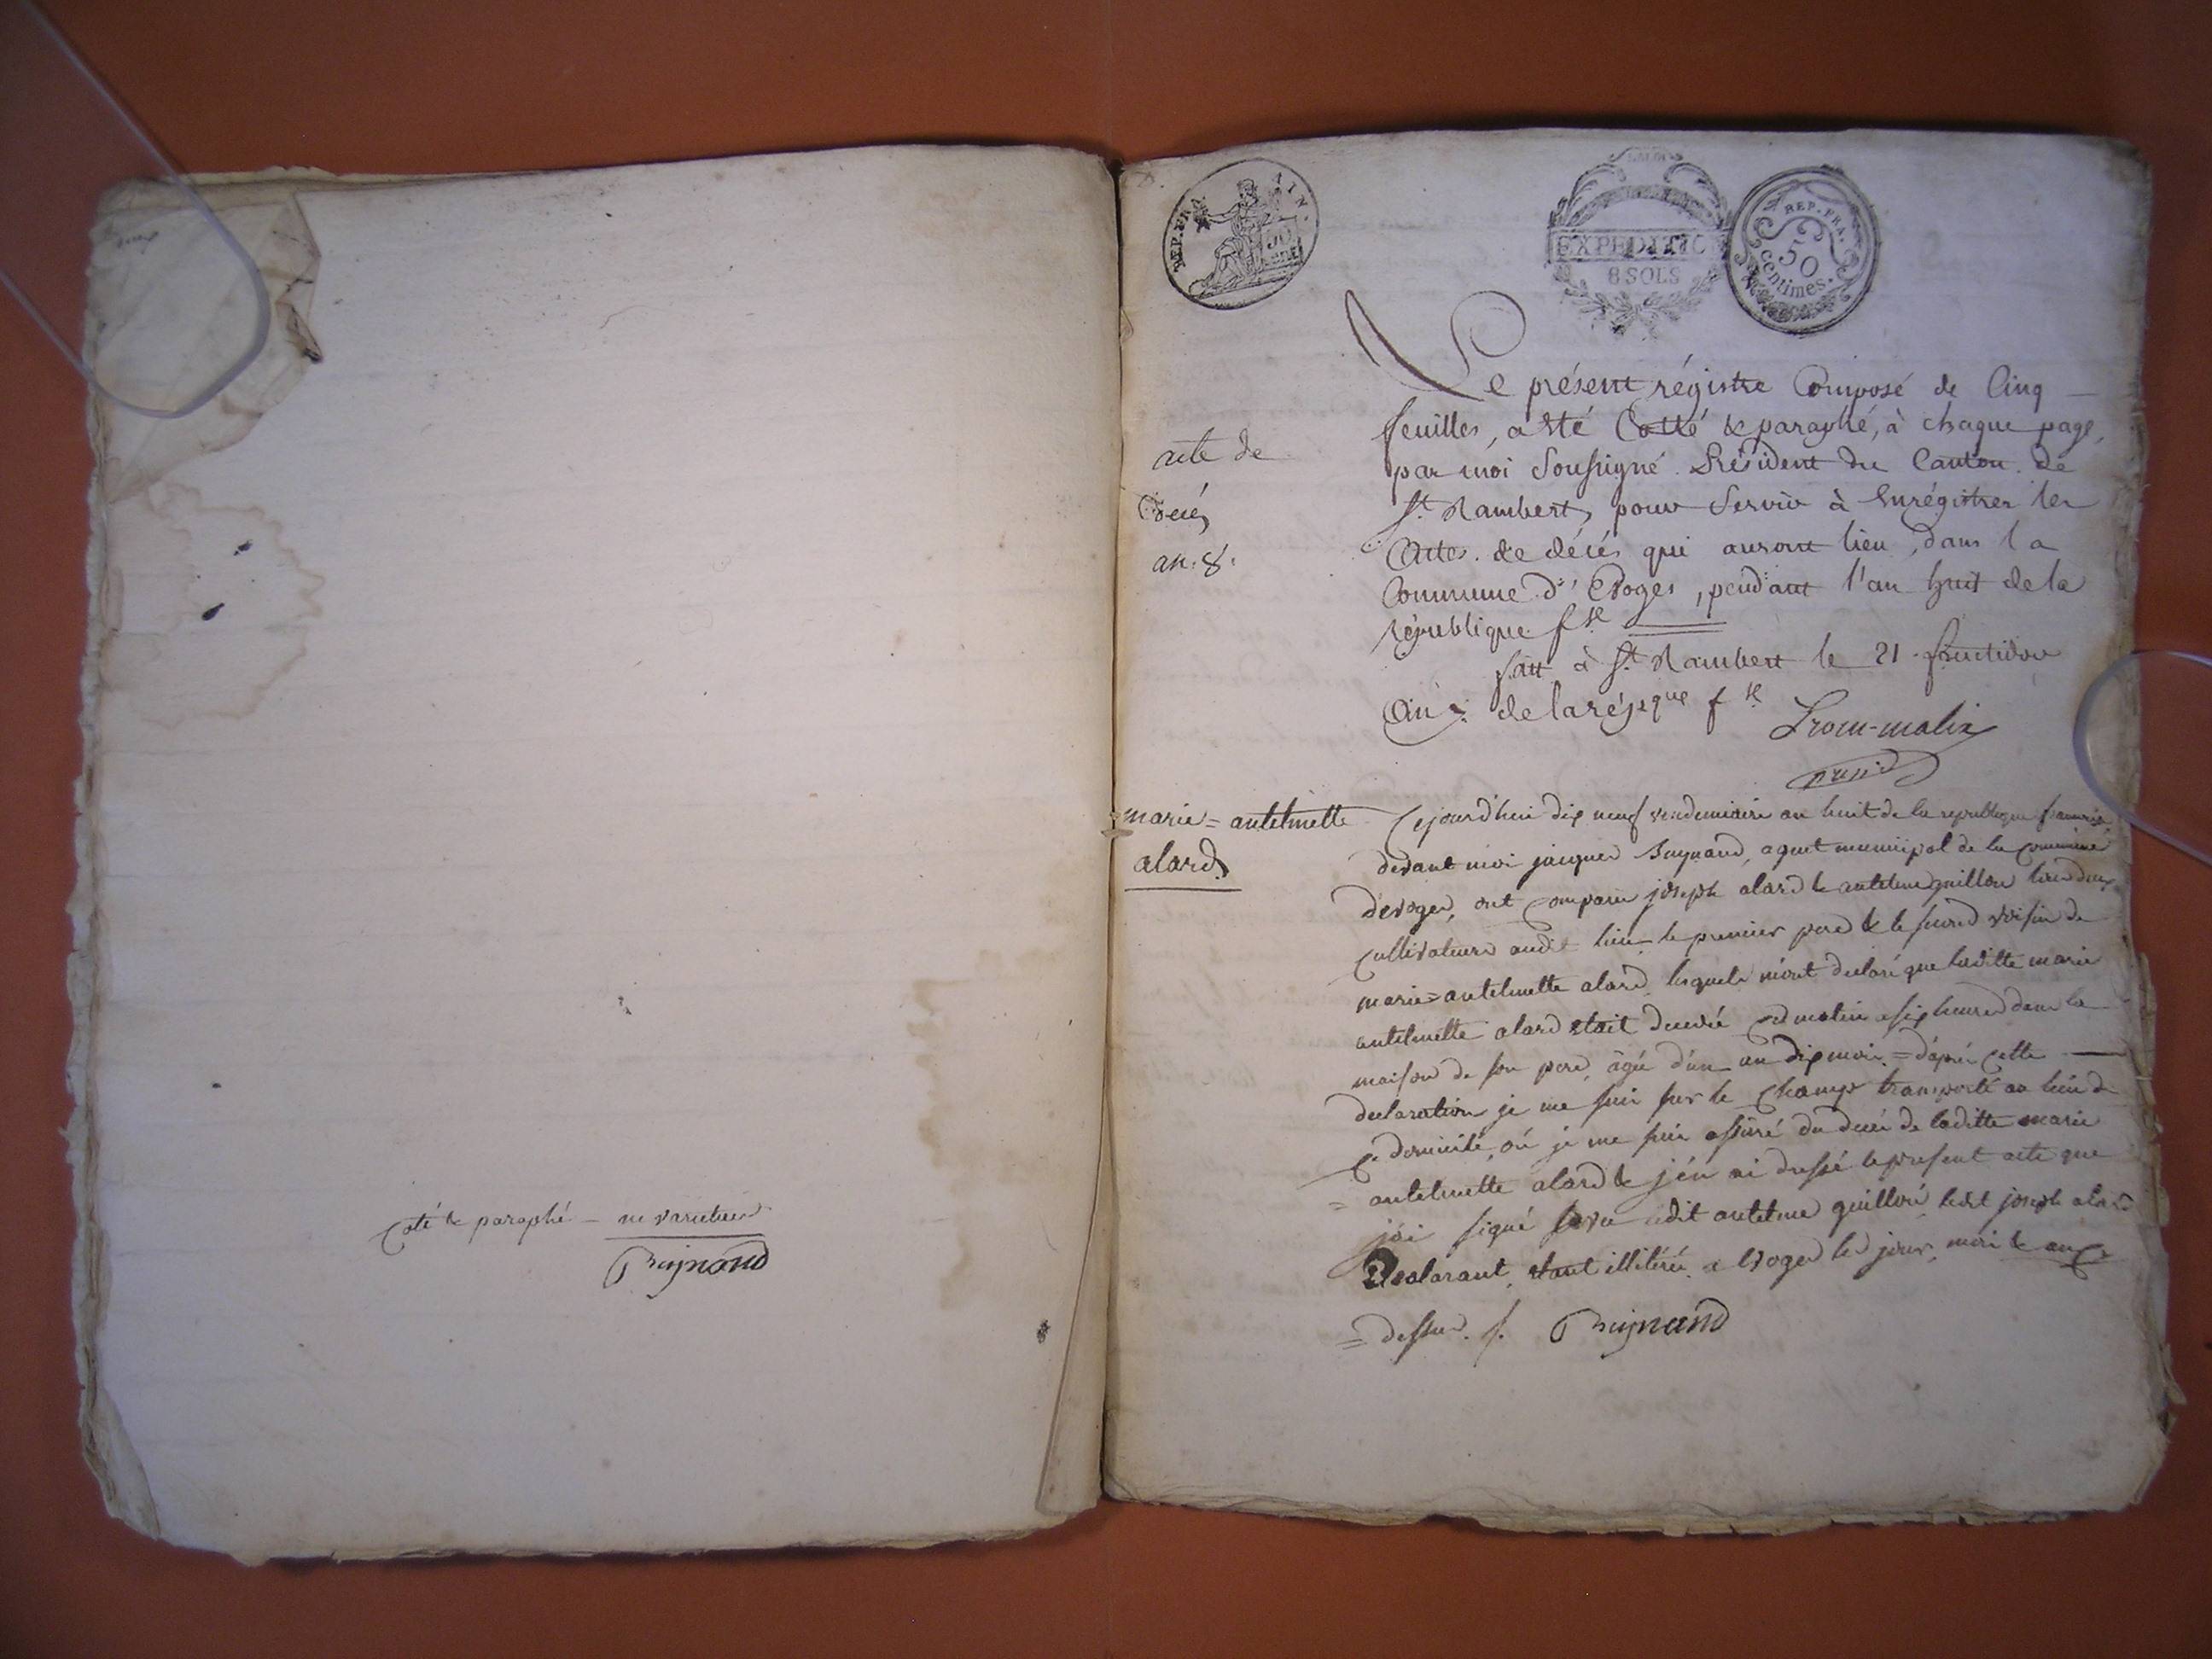 Coté & paraphé – ne varietur
Bujnand
REP. FRA.
AIN.
EXPEDITIO
8 SOLS
REP. FRA.
50
centimes.
acte de
decés
an. 8.
Le présent régistre Composé de Cinq
feuilles, a été Cotté & paraphé, à chaque page,
par moi Soussigné Président du Canton de
St. Rambert, pour Servir à Enrégistrer les
Actes de décés qui auront lieu, dans la
Commune d'Evoges, pendant l'an huit de la
République fse
fait à St. Rambert le 21 fructidor
An 7. de la répque fse
présid
marie = antelmette
alard
Cejourd'hui dix neuf vendemiaire an huit de la republique francaise
devant moi jacques Bujnand, agent municipal de la commune
d'evoges, ont comparu joseph alard & antelme guillon tous deux
cultivateurs audit lieu le premier pere & le second voisin de
marie = antelmette alard, lesquels m'ont declaré que laditte marie
antelmette alard etait decedée ce matin a six heures dans la
maison de son pere, agée d'un an dix mois = d'aprés cette
declaration je me suis sur le champs transporté au lieu de
ce domicile, où je me suis assuré du decés de laditte marie
= antelmette alard & j'en ai dressé le present acte que
j'ai signé antelme ledit joseph alard
Declarant, etant illiteré. a Evoges les jour, mois & an Ci
= dessus. /. Bujnand